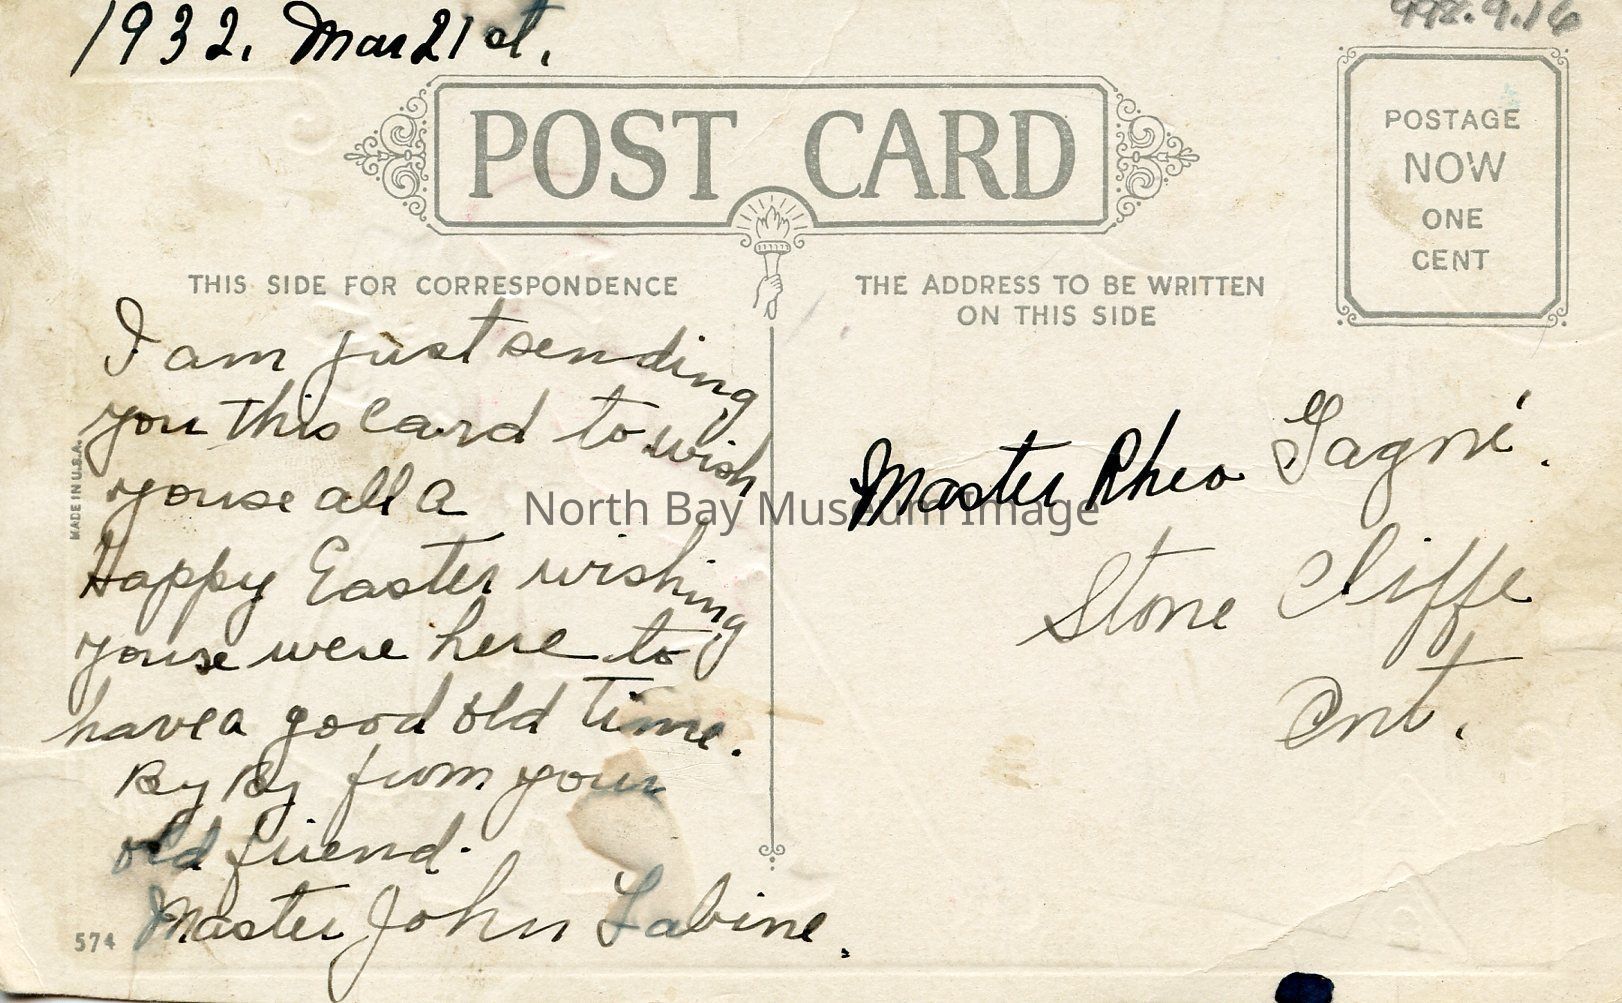 1932. Mar 21st.
998.9.16
POST CARD
POSTAGE
NOW
ONE
CENT
THIS SIDE FOR CORRESPONDENCE
THE ADDRESS TO BE WRITTEN
ON THIS SIDE
I am just sending
you this Card to wish
youse all a
Happy Easter wishing
youse were here to
have a good old time.
By By from your
old friend.
Master John Labine.
Master Rheo Gagné.
Stone Cliffe
Ont.
MADE IN U.S.A.
574
North Bay Museum Image